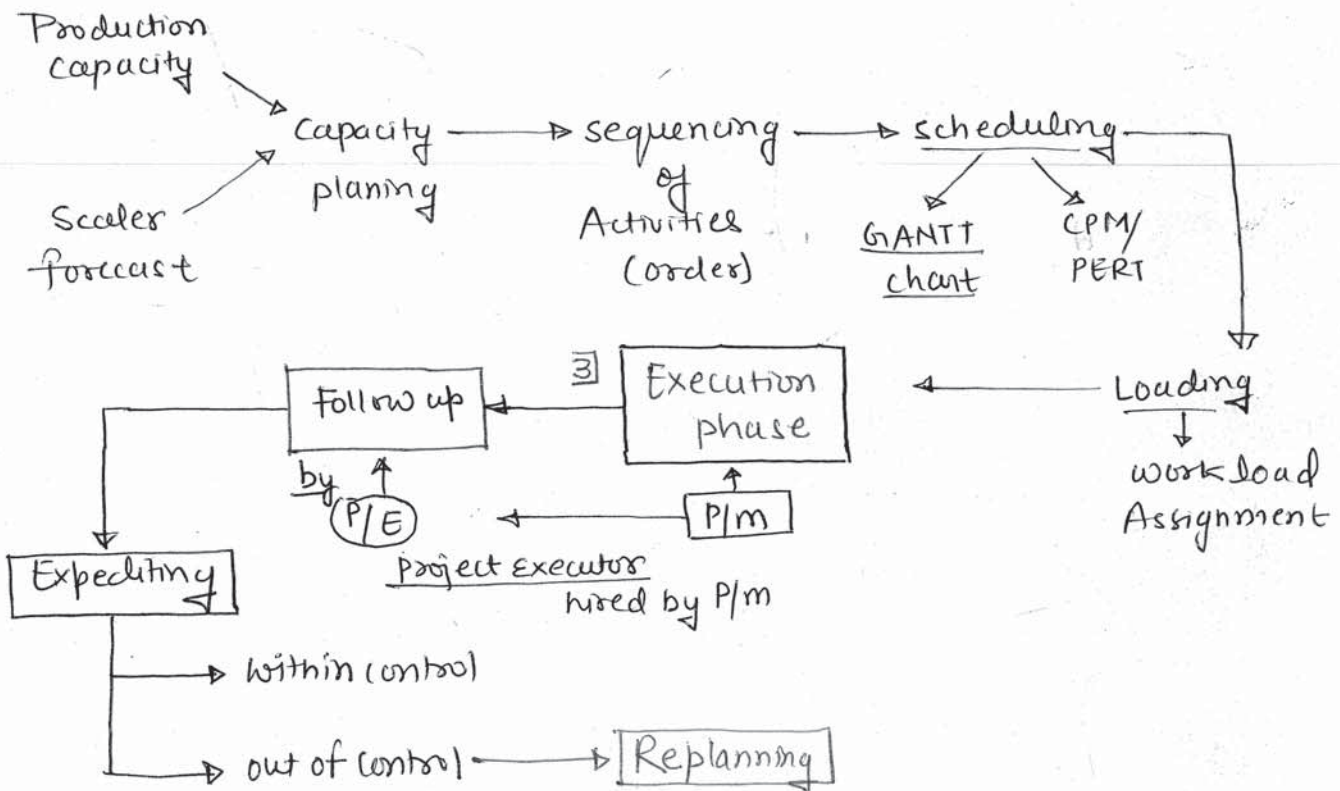 Production
capacity
Capacity
planing
Scaler
forecast
sequencing
of
Activities
(order)
scheduling
GANTT
chart
CPM/
PERT
Loading
work load
Assignment
3
Execution
phase
P/m
Follow up
by
P/E
project executor
hired by P/m
Expediting
within control
out of control
Replanning